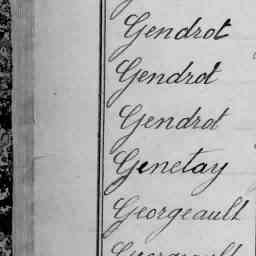 Gendrot
Gendrot
Gendrot
Genetay
Georgeault